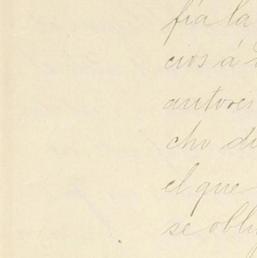 fía la
cios á
autores
cho di
el que
se obli